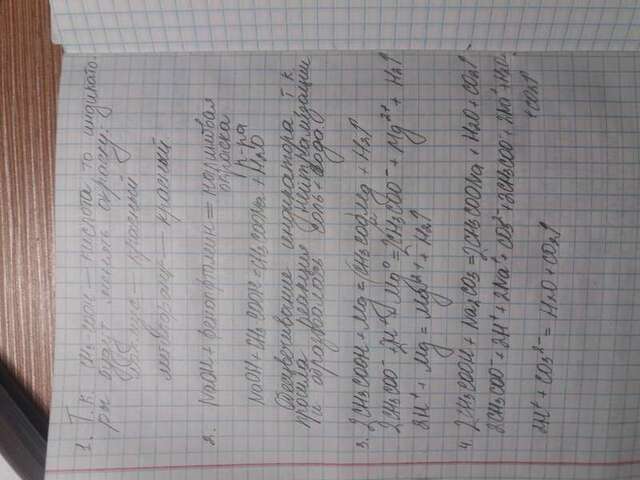 1. Т.к CH3COOH — кислота, то индикато-
ры будут менять окраску:
лакмус — красный
метилоранж — красный.
2. NaOH + фенолфталеин = малиновая
окраска
р-ра
NaOH + CH3COOH = CH3COONa + H2O
Обесцвечивание индикатора, т.к.
прошла реакция (нейтрализации)
и образовалась соль + вода
3. 2CH3COOH + Mg = (CH3COO)2Mg + H2↑
2CH3COO⁻ + 2H⁺ + Mg⁰ = 2CH3COO⁻ + Mg²⁺ + H2↑
2H⁺ + Mg = Mg²⁺ + H2↑
4. 2CH3COOH + Na2CO3 = 2CH3COONa + H2O + CO2↑
2CH3COO⁻ + 2H⁺ + 2Na⁺ + CO3²⁻ = 2CH3COO⁻ + 2Na⁺ + H2O
+ CO2↑
2H⁺ + CO3²⁻ = H2O + CO2↑